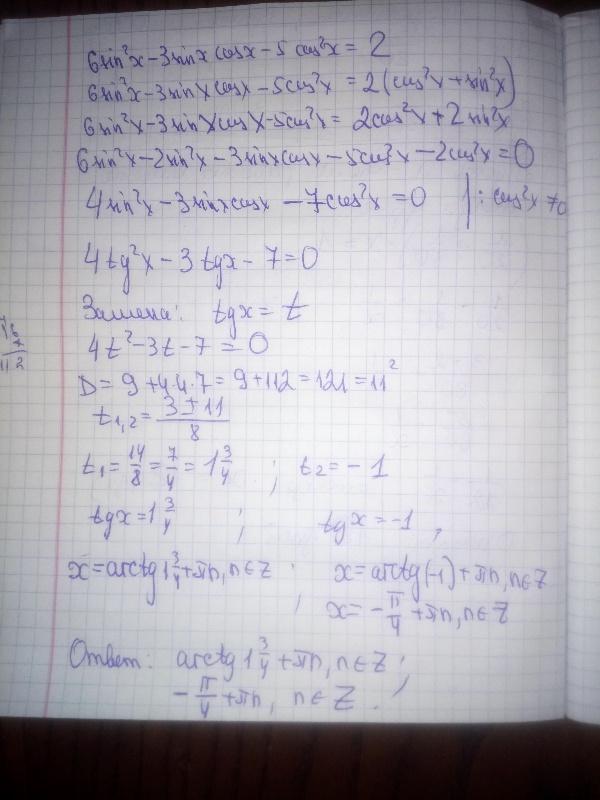 6sin²x - 3sinx cosx - 5cos²x = 2
6sin²x - 3sinx cosx - 5cos²x = 2(cos²x + sin²x)
6sin²x - 3sinx cosx - 5cos²x = 2cos²x + 2sin²x
6sin²x - 2sin²x - 3sinx cosx - 5cos²x - 2cos²x = 0
4sin²x - 3sinx cosx - 7cos²x = 0 | : cos²x ≠ 0
4tg²x - 3tgx - 7 = 0
Замена: tgx = t
4t² - 3t - 7 = 0
D = 9 + 4·4·7 = 9 + 112 = 121 = 11²
t₁,₂ = (3 ± 11)/8
t₁ = 14/8 = 7/4 = 1 3/4 ; t₂ = -1
tgx = 1 3/4 ; tgx = -1,
x = arctg 1 3/4 + πn, n ∈ Z ; x = arctg(-1) + πn, n ∈ Z
x = -π/4 + πn, n ∈ Z
Ответ: arctg 1 3/4 + πn, n ∈ Z ;
-π/4 + πn, n ∈ Z.
112